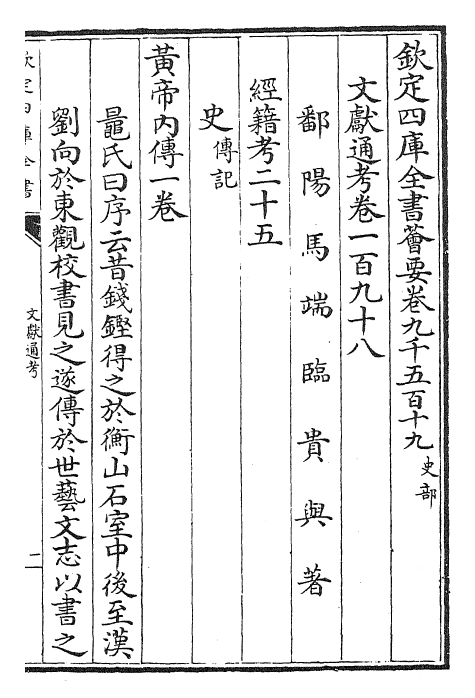 欽定四庫全書薈要卷九千五百十九史部
文獻通考卷一百九十八
鄱陽馬端臨貴與著
經籍考二十五
史傳記
黃帝內傳一卷
鼂氏曰序云昔錢鏗得之於衡山石室中後至漢
劉向於東觀校書見之遂傳於世藝文志以書之
欽定四庫全書
文獻通考
二